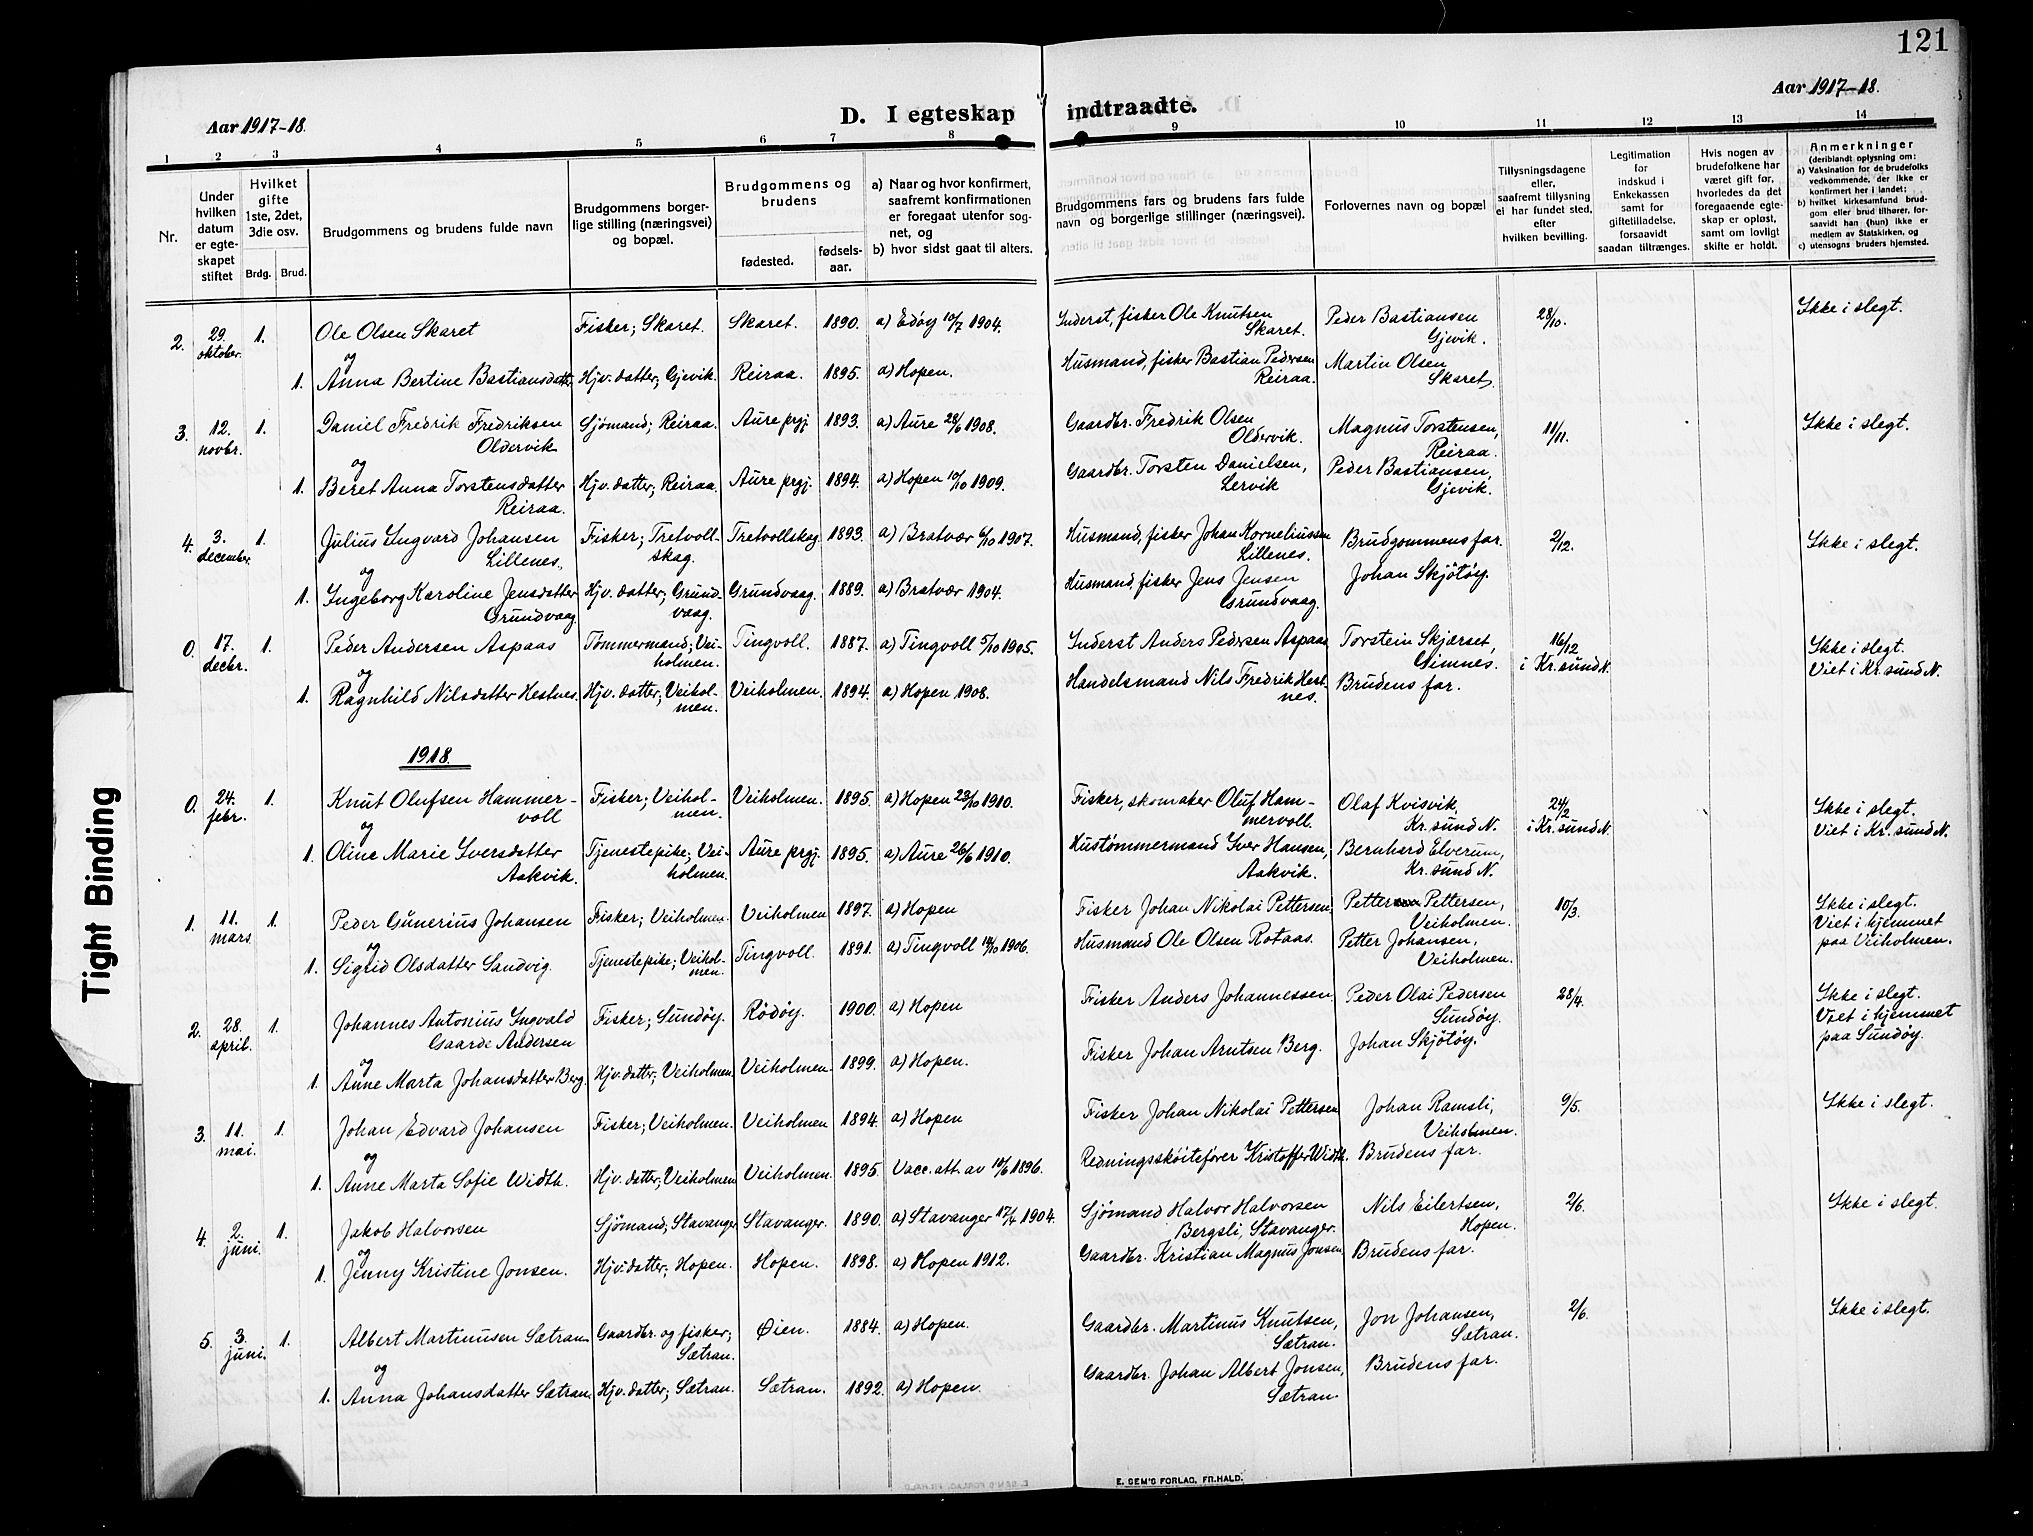 121
Aar 1917-18.
D. I egteskap indtraadte.
Aar 1917-18.
1 2 3 4 5 6 7 8 9 10 11 12 13 14
Nr.
Under hvilken datum er egteskapet stiftet
Hvilket gifte 1ste, 2det, 3die osv.
Brdg. Brud.
Brudgommens og brudens fulde navn
Brudgommens borgerlige stilling (næringsvei) og bopæl.
Brudgommens og brudens
fødested. fødselsaar.
a) Naar og hvor konfirmert, saafremt konfirmationen er foregaat utenfor sognet, og
b) hvor sidst gaat til alters.
Brudgommens fars og brudens fars fulde navn og borgerlige stillinger (næringsvei).
Forlovernes navn og bopæl
Tillysningsdagene eller, saafremt tillysning ei har fundet sted, efter hvilken bevilling.
Legitimation for indskud i Enkekassen samt for giftetilladelse, forsaavidt saadan tiltrænges.
Hvis nogen av brudefolkene har været gift før, hvorledes da det foregaaende egteskap er opløst, samt om lovligt skifte er holdt.
Anmerkninger
(deriblandt oplysning om:
a) Vaksination for de brudefolks vedkommende, der ikke er konfirmert her i landet;
b) hvilket kirkesamfund brudgom eller brud tilhører, forsaavidt han (hun) ikke er medlem av Statskirken, og
c) utensogns bruders hjemsted.
2. 29. oktober. 1. Ole Olsen Skaret Fisker; Skaret. Skaret. 1890. a) Edöy 10/7 1904. Inderst, fisker Ole Knutsen Skaret. Peder Bastiansen Gjevik. 28/10. Ikke i slegt.
og
1. Anna Bertine Bastiansdatt. Hjv. datter; Gjevik. Reiraa. 1895. a) Hopen. Husmand, fisker Bastian Pedersen Reiraa. Martin Olsen Skaret.
3. 12. novbr. 1. Daniel Fredrik Fredriksen Oldervik Sjömand; Reiraa. Aure prgj. 1893. a) Aure 28/6 1908. Gaardbr. Fredrik Olsen Oldervik. Magnus Torstensen, Reiraa. 11/11. Ikke i slegt.
og
1. Beret Anna Torstensdatter Reiraa. Hjv. datter; Reiraa. Aure prgj. 1894. a) Hopen 10/10 1909. Gaardbr. Torsten Danielsen, Lervik Peder Bastiansen, Gjevik.
4. 3. december. 1. Julius Ingvard Johansen Lillenes. Fisker; Tretvollskag. Tretvollskag. 1893. a) Bratvær 6/10 1907. Husmand, fisker Johan Korneliussen Lillenes. Brudgommens far. 2/12. Ikke i slegt.
og
1. Ingeborg Karoline Jensdatter Grundvaag Hjv. datter; Grundvaag. Grundvaag. 1889. a) Bratvær 1904. Husmand, fisker Jens Jensen Grundvaag. Johan Skjötöy.
0. 17. decbr. 1. Peder Andersen Aspaas Tömmermand; Veiholmen. Tingvoll. 1887. a) Tingvoll 5/10 1905. Inderst Anders Pedersen Aspaas Torstein Skjærset, Gimnes. 16/12 i Kr.sund N. Ikke i slegt. Viet i Kr.sund N.
og
1. Ragnhild Nilsdatter Hestnes. Hjv. datter; Veiholmen. Veiholmen. 1894. a) Hopen 1908. Handelsmand Nils Fredrik Hestnes. Brudens far.
1918.
0. 24. febr. 1. Knut Olufsen Hammervoll Fisker; Veiholmen. Veiholmen. 1895. a) Hopen 23/10 1910. Fisker, skomaker Oluf Hammervoll. Olaf Kvisvik Kr.sund N. 24/2 i Kr.sund N. Ikke i slegt. Viet i Kr.sund N.
og
1. Oline Marie Iversdatter Aakvik. Tjenestepike; Veiholmen. Aure prgj. 1895. a) Aure 26/6 1910. Hustömmermand Iver Hansen, Aakvik. Bernhard Elverum, Kr.sund N.
1. 11. mars 1. Peder Gunerius Johansen Fisker; Veiholmen. Veiholmen 1897. a) Hopen Fisker Johan Nikolai Pettersen, Petter Pettersen, Veiholmen. 10/3. Ikke i slegt. Viet i hjemmet paa Veiholmen.
og
1. Sigrid Olsdatter Sandvig. Tjenestepike; Veiholmen. Tingvoll. 1891. a) Tingvoll 14/10 1906. Husmand Ole Olsen Rotaas. Petter Johansen, Veiholmen.
2. 28. april. 1. Johannes Antonius Ingvald Gaarde Andersen Fisker; Sundöy. Rödöy. 1900. a) Hopen Fisker Anders Johannessen. Peder Olai Pedersen Sundöy. 28/4. Ikke i slegt. Viet i hjemmet paa Sundöy.
og
1. Anne Marta Johansdatter Berg. Hjv. datter; Veiholmen. Veiholmen. 1899. a) Hopen. Fisker Johan Arntsen Berg. Johan Skjötöy.
3. 11. mai. 1. Johan Edvard Johansen Fisker; Veiholmen. Veiholmen 1894. a) Hopen Fisker Johan Nikolai Pettersen Johan Ramsli, Veiholmen. 9/5. Ikke i slegt.
og
1. Anne Marta Sofie Width. Hjv. datter; Veiholmen Veiholmen. 1895. Vacc. att. av 10/6 1896. Redningsskôitefører Kristoffer Width. Brudens far.
4. 2. juni. 1. Jakob Halvorsen Sjömand; Stavanger Stavanger. 1890. a) Stavanger 17/4 1904. Sjømand Halvor Halvorsen Bergsli, Stavanger. Nils Eilertsen, Hopen. 2/6. Ikke i slegt.
og
1. Jenny Kristine Jonsen. Hjv. datter; Hopen. Hopen. 1898. a) Hopen 1912. Gaardbr. Kristian Magnus Jonsen Brudens far.
5. 3. juni. 1. Albert Martinusen Sætran Gaardbr. og fisker; Sætran. Øien. 1884. a) Hopen. Gaardbr. Martinus Knutsen, Sætran. Jon Johansen, Sætran. 2/6. Ikke i slegt.
og
1. Anna Johansdatter Sætran. Hjv. datter; Sætran. Sætran. 1892. a) Hopen. Gaardbr. Johan Albert Jonsen, Sætran. Brudens far.
E. SEM'S FORLAG, FR.HALD.
Tight Binding